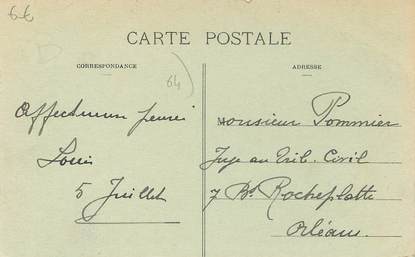 6€
CARTE POSTALE
CORRESPONDANCE
ADRESSE
64
Affectueux
Louis
5 Juillet
Monsieur Pommier
Juge au Trib. Civil
7 Bd Rocheplatte
Orléans